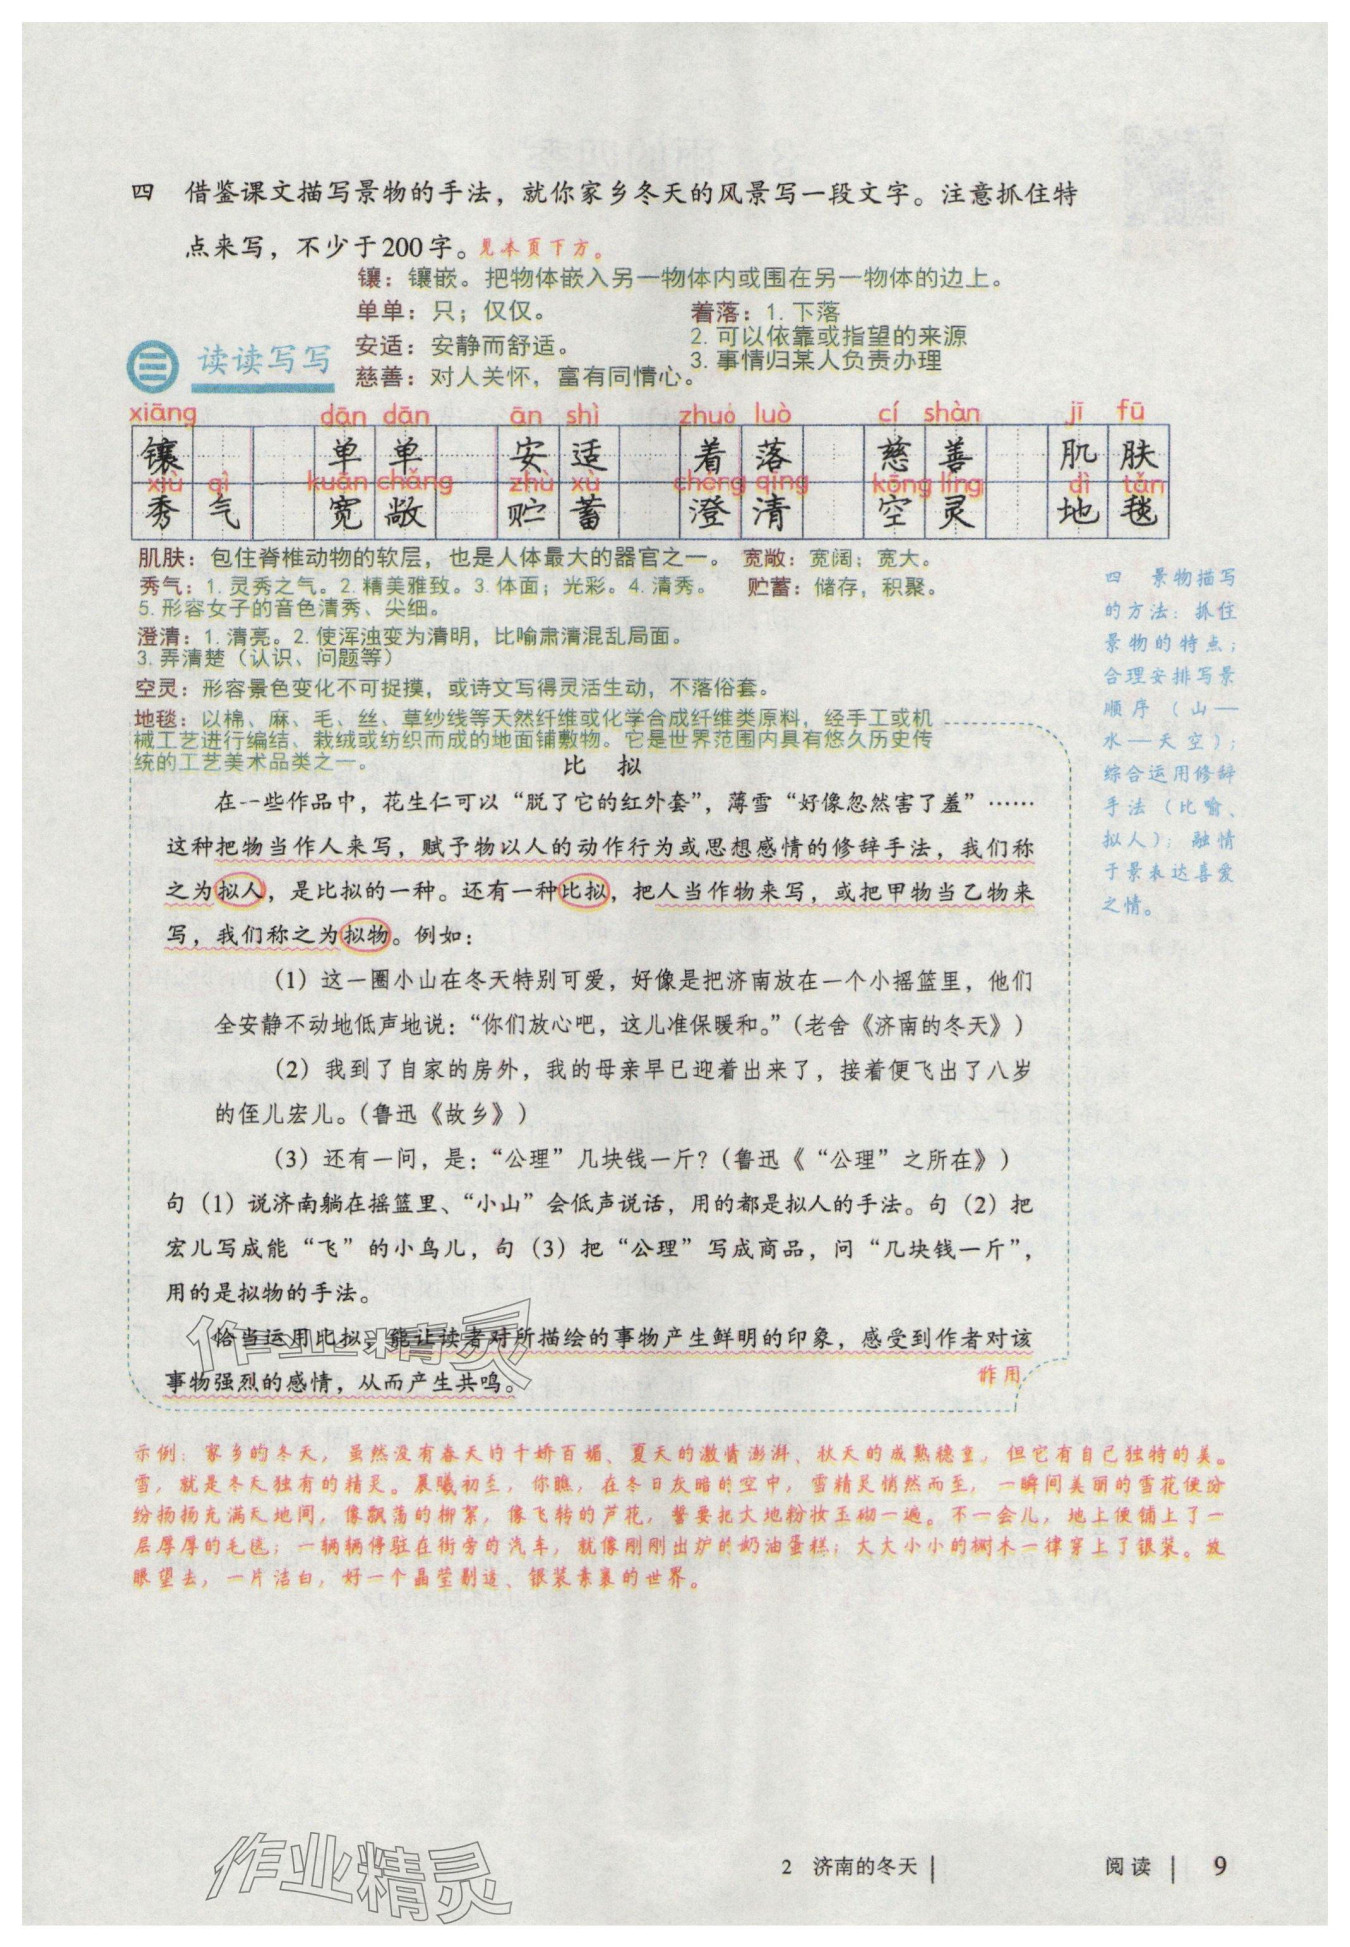 四　借鉴课文描写景物的手法，就你家乡冬天的风景写一段文字。注意抓住特
点来写，不少于200字。见本页下方。
镶：镶嵌。把物体嵌入另一物体内或围在另一物体的边上。
单单：只；仅仅。
着落：1.下落
2.可以依靠或指望的来源
3.事情归某人负责办理
安适：安静而舒适。
慈善：对人关怀，富有同情心。
读读写写
xiāng dān dān ān shì zhuó luò cí shàn jī fū
镶 单单 安适 着落 慈善 肌肤
xiù qì kuān chǎng zhù xù chéng qīng kōng líng dì tǎn
秀气 宽敞 贮蓄 澄清 空灵 地毯
肌肤：包住脊椎动物的软层，也是人体最大的器官之一。 宽敞：宽阔；宽大。
秀气：1.灵秀之气。2.精美雅致。3.体面；光彩。4.清秀。 贮蓄：储存，积聚。
5.形容女子的音色清秀、尖细。
澄清：1.清亮。2.使浑浊变为清明，比喻肃清混乱局面。
3.弄清楚（认识、问题等）
空灵：形容景色变化不可捉摸，或诗文写得灵活生动，不落俗套。
地毯：以棉、麻、毛、丝、草纱线等天然纤维或化学合成纤维类原料，经手工或机
械工艺进行编结、栽绒或纺织而成的地面铺敷物。它是世界范围内具有悠久历史传
统的工艺美术品类之一。
四　景物描写
的方法：抓住
景物的特点；
合理安排写景
顺序（山—
水—天空）；
综合运用修辞
手法（比喻、
拟人）；融情
于景表达喜爱
之情。
比　拟
在一些作品中，花生仁可以“脱了它的红外套”，薄雪“好像忽然害了羞”……
这种把物当作人来写，赋予物以人的动作行为或思想感情的修辞手法，我们称
之为拟人，是比拟的一种。还有一种比拟，把人当作物来写，或把甲物当乙物来
写，我们称之为拟物。例如：
（1）这一圈小山在冬天特别可爱，好像是把济南放在一个小摇篮里，他们
全安静不动地低声地说：“你们放心吧，这儿准保暖和。”（老舍《济南的冬天》）
（2）我到了自家的房外，我的母亲早已迎着出来了，接着便飞出了八岁
的侄儿宏儿。（鲁迅《故乡》）
（3）还有一问，是：“公理”几块钱一斤？（鲁迅《“公理”之所在》）
句（1）说济南躺在摇篮里、“小山”会低声说话，用的都是拟人的手法。句（2）把
宏儿写成能“飞”的小鸟儿，句（3）把“公理”写成商品，问“几块钱一斤”，
用的是拟物的手法。
恰当运用比拟，能让读者对所描绘的事物产生鲜明的印象，感受到作者对该
事物强烈的感情，从而产生共鸣。
作用
作业精灵
示例：家乡的冬天，虽然没有春天的千娇百媚、夏天的激情澎湃、秋天的成熟稳重，但它有自己独特的美。
雪，就是冬天独有的精灵。晨曦初至，你瞧，在冬日灰暗的空中，雪精灵悄然而至，一瞬间美丽的雪花便纷
纷扬扬充满天地间，像飘荡的柳絮，像飞转的芦花，誓要把大地粉妆玉砌一遍。不一会儿，地上便铺上了一
层厚厚的毛毯；一辆辆停驻在街旁的汽车，就像刚刚出炉的奶油蛋糕；大大小小的树木一律穿上了银装。放
眼望去，一片洁白，好一个晶莹剔透、银装素裹的世界。
作业精灵
2　济南的冬天　阅读　9